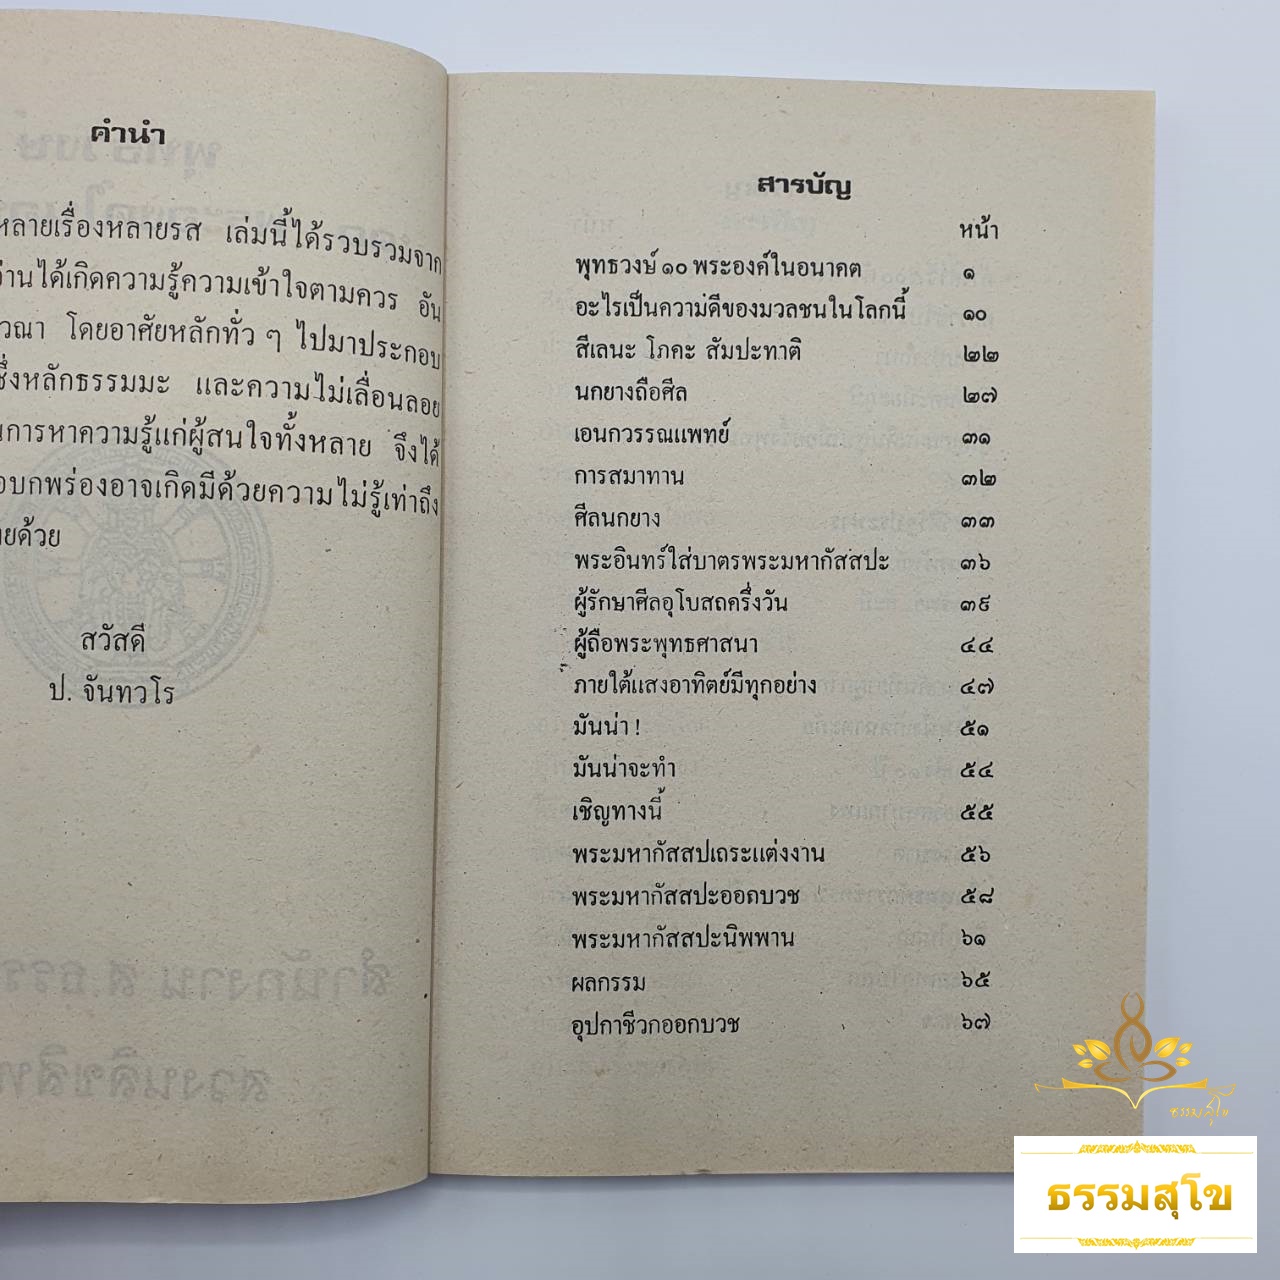 คำนำ
หลายเรื่องหลายรส เล่มนี้ได้รวบรวมจาก
ได้เกิดความรู้ความเข้าใจตามควร อัน
โดยอาศัยหลักทั่ว ๆ ไปมาประกอบ
ซึ่งหลักธรรมมะ และความไม่เลื่อนลอย
การหาความรู้แก่ผู้สนใจทั้งหลาย จึงได้
บกพร่องอาจเกิดมีด้วยความไม่รู้เท่าถึง
ด้วย
สวัสดี
ป. จันทวโร
สารบัญ
หน้า
พุทธวงษ์ ๑๐ พระองค์ในอนาคต ๑
อะไรเป็นความดีของมวลชนในโลกนี้ ๑๐
สีเลนะ โภคะ สัมปะทาติ ๒๒
นกยางถือศีล ๒๗
เอนกวรรณแพทย์ ๓๑
การสมาทาน ๓๒
ศีลนกยาง ๓๓
พระอินทร์ใส่บาตรพระมหากัสสปะ ๓๖
ผู้รักษาศีลอุโบสถครึ่งวัน ๓๙
ผู้ถือพระพุทธศาสนา ๔๔
ภายใต้แสงอาทิตย์มีทุกอย่าง ๔๗
มันน่า ! ๕๑
มันน่าจะทำ ๕๔
เชิญทางนี้ ๕๕
พระมหากัสสปเถระแต่งงาน ๕๖
พระมหากัสสปะออกบวช ๕๘
พระมหากัสสปะนิพพาน ๖๑
ผลกรรม ๖๕
อุปกาชีวกออกบวช ๖๗
ธรรมสุโข
ธรรมสุโข